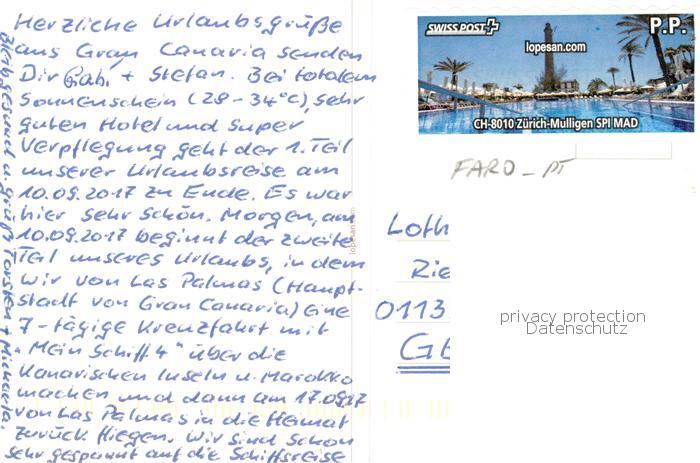 Herzliche Urlaubsgrüße
aus Gran Canaria senden
Dir Gabi + Stefan. Bei totalem
Sonnenschein (28-34°C), sehr
guten Hotel und super
Verpflegung geht der 1. Teil
unserer Urlaubsreise am
10.09.2017 zu Ende. Es war
hier sehr schön. Morgen, am
10.09.2017 beginnt der zweite
Teil unseres Urlaubs, in dem
wir von Las Palmas (Haupt-
stadt von Gran Canaria) eine
7-tägige Kreuzfahrt mit
„Mein Schiff 4" über die
Kanarischen Inseln u. Marokko
machen und dann am 17.09.17
von Las Palmas in die Heimat
zurück fliegen. Wir sind schon
sehr gespannt auf die Schiffsreise
Bleib gesund u. grüß Torsten + Michaela.
lopesan.com
SWISS POST
P.P.
lopesan.com
CH-8010 Zürich-Mulligen SPI MAD
FARO - PT
Loth
Rie
0113
GE
privacy protection
Datenschutz